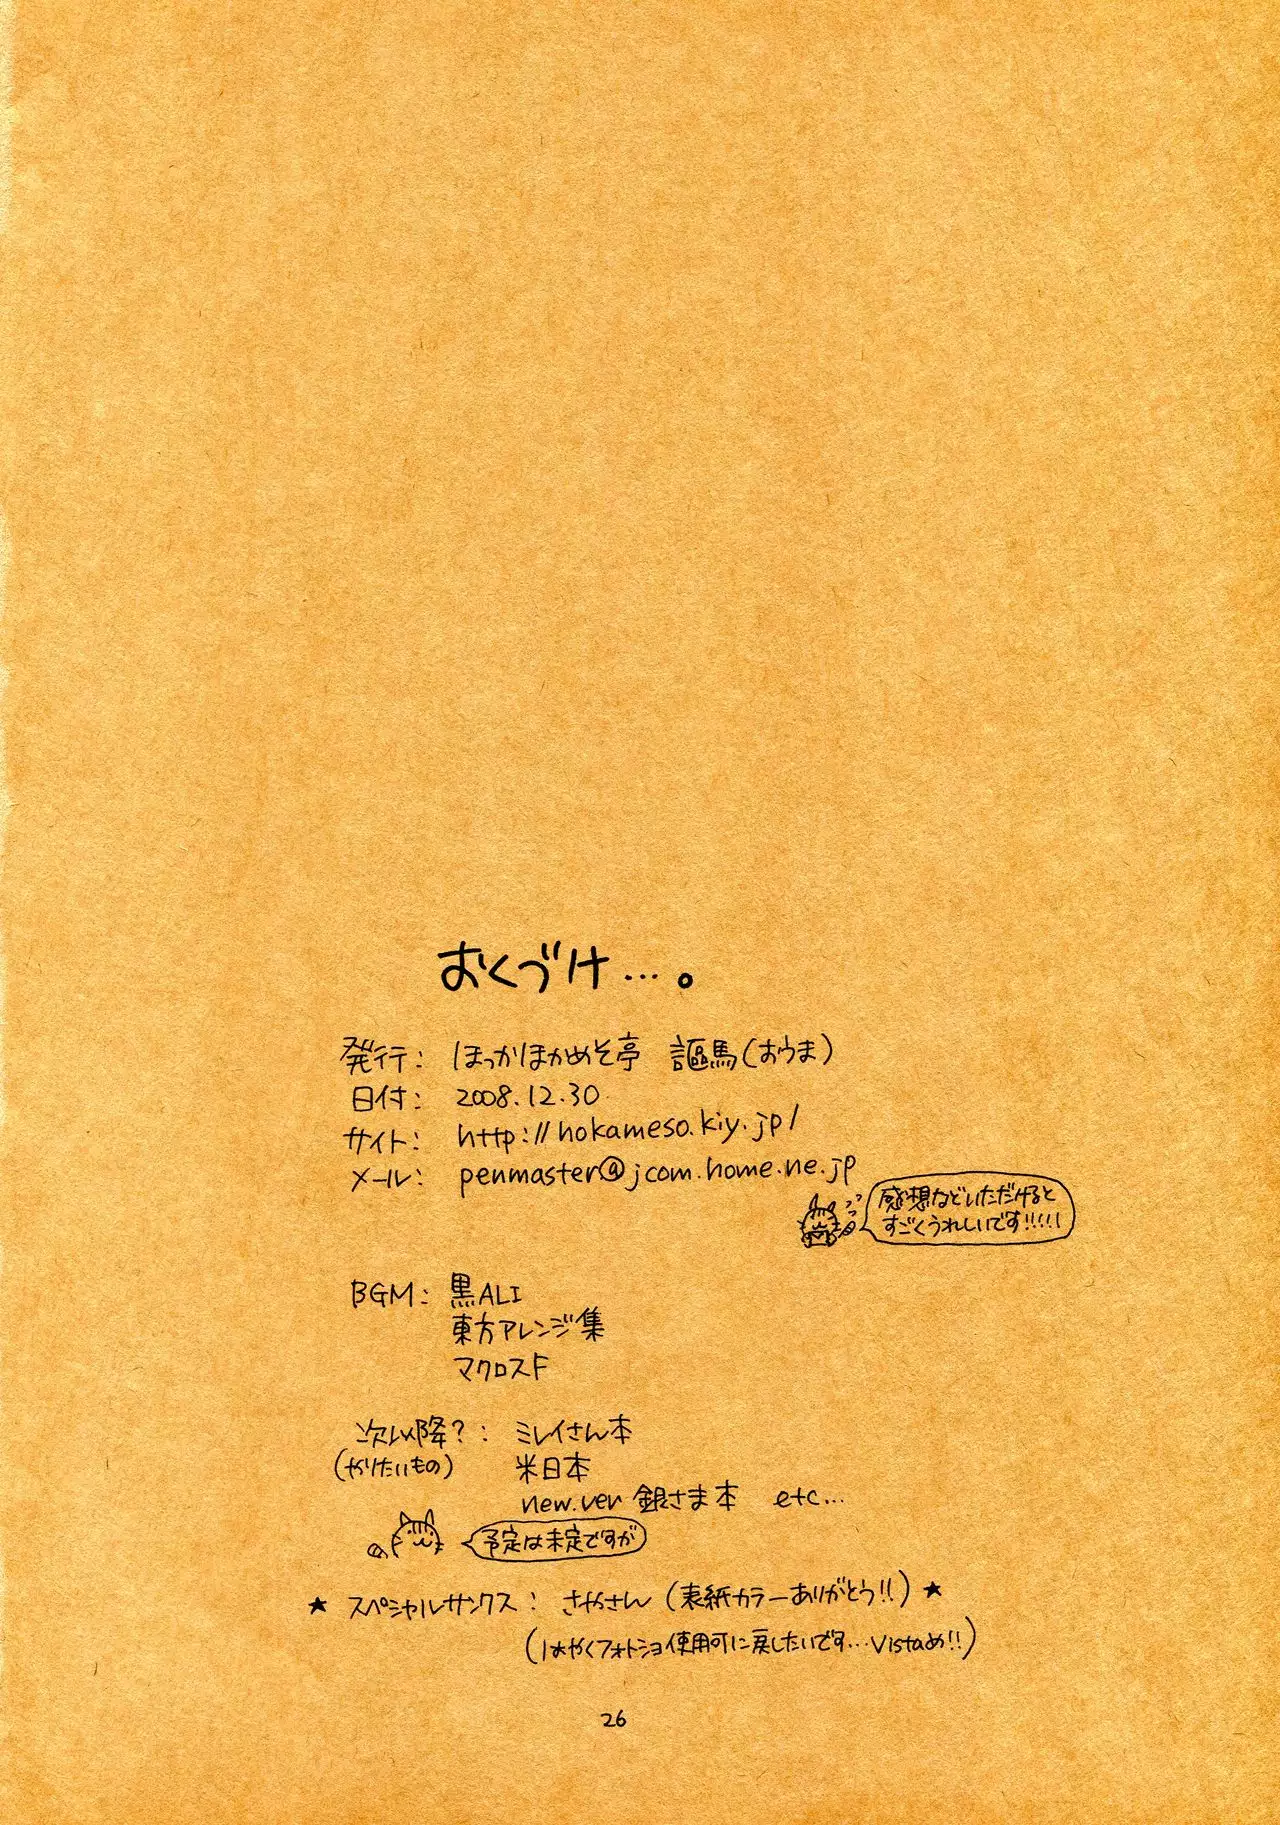 おくづけ…。
発行： ほっかほかめそ亭 謳馬（おうま）
日付： 2008.12.30
サイト： http://hokameso.kiy.jp/
メール： penmaster@jcom.home.ne.jp
感想などいただけると
すごくうれしいです!!!!!
BGM： 黒ALI
東方アレンジ集
マクロスF
次以降？： ミレイさん本
（やりたいもの） 米日本
new.ver 銀さま本 etc...
予定は未定ですが
★ スペシャルサンクス： さやさん（表紙カラーありがとう!!）★
（はやくフォトショ使用可に戻したいです…Vistaめ!!）
26